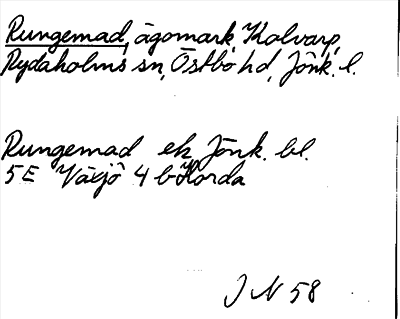 Rungemad, ägomark, Kalvarp,
Rydaholms sn, Östbo hd, Jönk. l.
Rungemad ek Jönk. bl.
5E Växjö 4 b Horda
J N 58